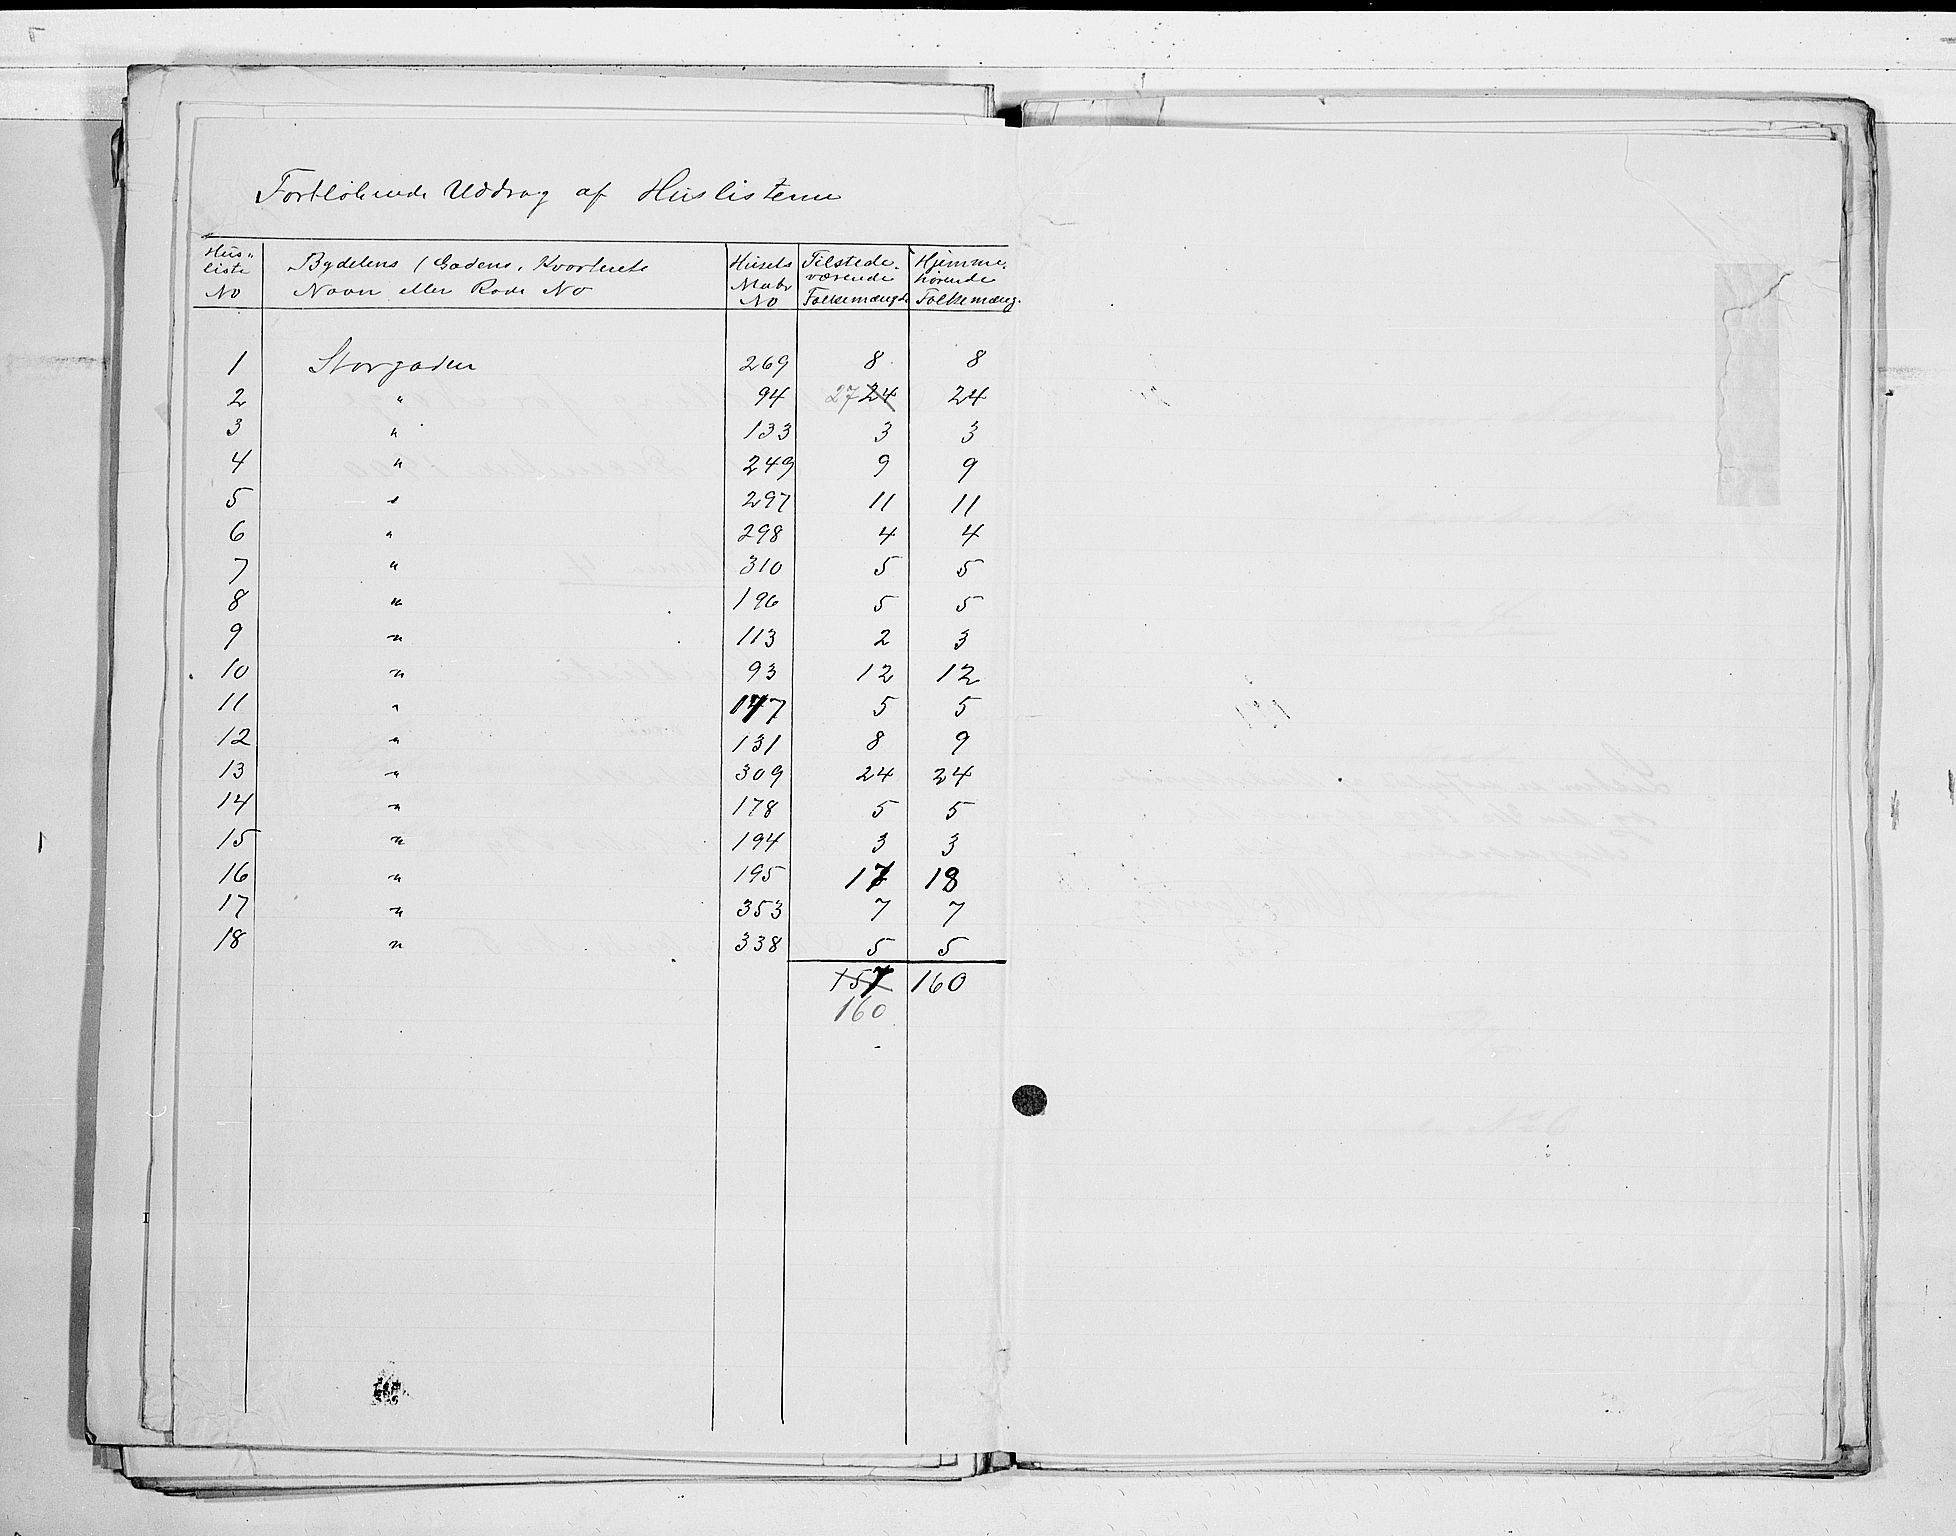 Fortløbende Uddrag af Huslisterne
Hus- liste No | Bydelens / Gadens, Kvarterets Navn eller Rode No | Husets Matr No | Tilstede- værende Folkemængde | Hjemme- hørende Folkemæng.
1 Storgaden 269 8 8
2 " 94 27 24 24
3 " 133 3 3
4 " 249 9 9
5 " 297 11 11
6 " 298 4 4
7 " 310 5 5
8 " 196 5 5
9 " 113 2 3
10 " 93 12 12
11 " 177 5 5
12 " 131 8 9
13 " 309 24 24
14 " 178 5 5
15 " 194 3 3
16 " 195 17 18
17 " 353 7 7
18 " 338 5 5
157 160
160